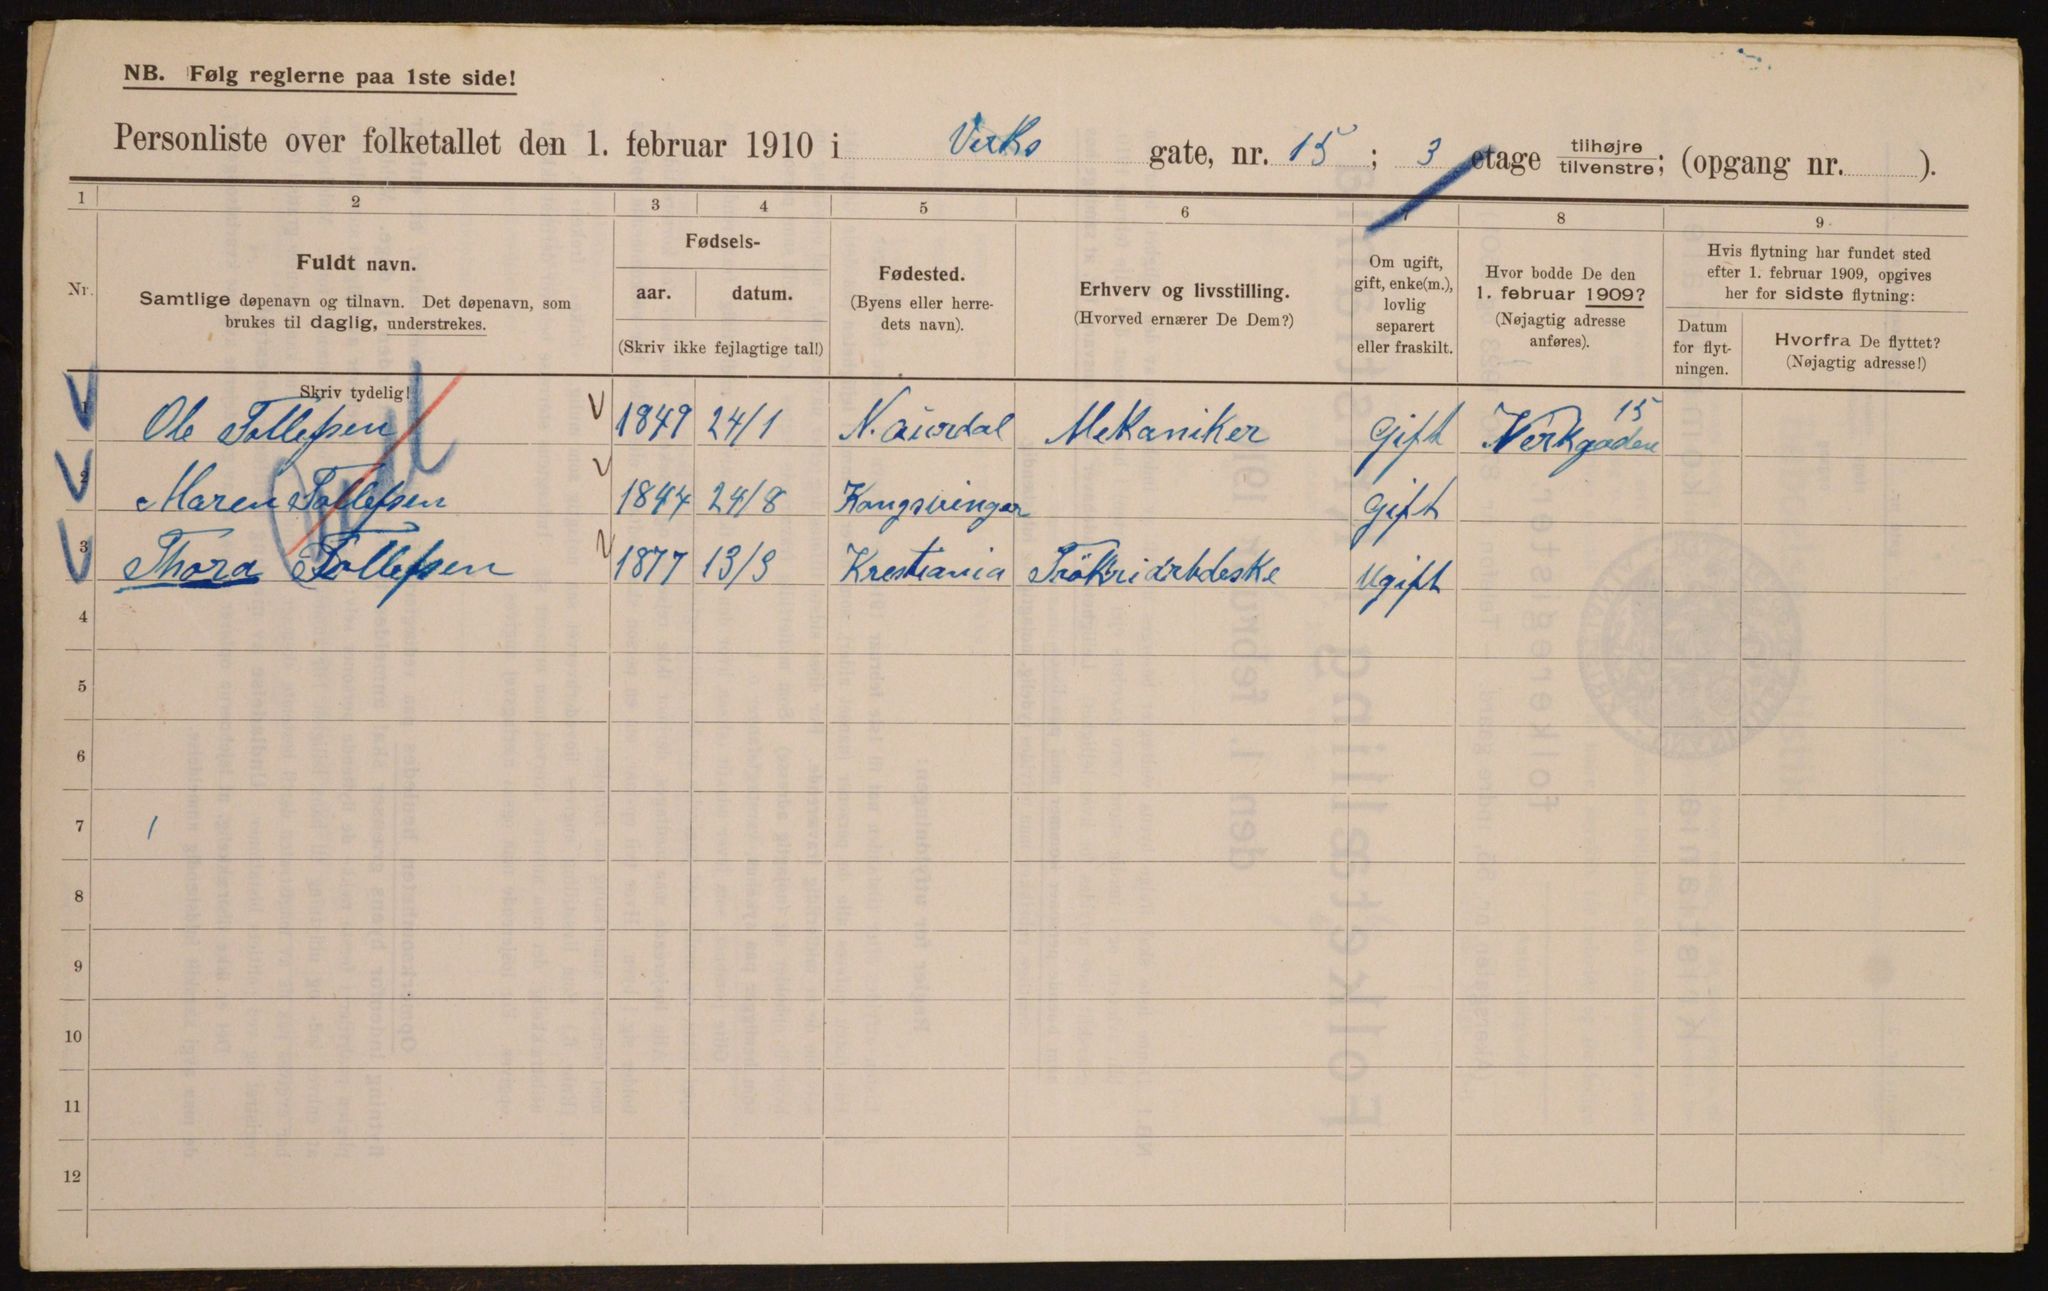 NB. Følg reglerne paa 1ste side!
Personliste over folketallet den 1. februar 1910 i Verks gate, nr. 15 ; 3 etage tilhøjre/tilvenstre; (opgang nr. ).
1 2 3 4 5 6 7 8 9
Nr.
Fuldt navn.
Samtlige døpenavn og tilnavn. Det døpenavn, som
brukes til daglig, understrekes.
Skriv tydelig!
Fødsels-
aar. datum.
(Skriv ikke fejlagtige tal!)
Fødested.
(Byens eller herre-
dets navn).
Erhverv og livsstilling.
(Hvorved ernærer De Dem?)
Om ugift,
gift, enke(m.),
lovlig
separert
eller fraskilt.
Hvor bodde De den
1. februar 1909?
(Nøjagtig adresse
anføres).
Hvis flytning har fundet sted
efter 1. februar 1909, opgives
her for sidste flytning:
Datum
for flyt-
ningen.
Hvorfra De flyttet?
(Nøjagtig adresse!)
1 Ole Tollefsen 1849 24/1 N. aurdal Mekaniker Gift Verkgaden 15
2 Maren Tollefsen 1844 24/8 Kongsvinger Gift
3 Thora Tollefsen 1877 13/3 Krestiania Ugift
4
5
6
7
8
9
10
11
12